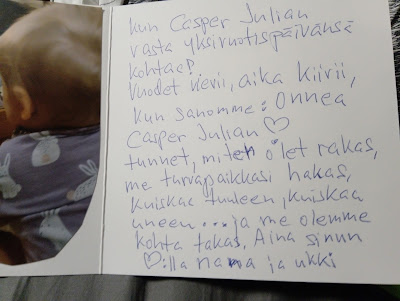 kun Casper Julian
vasta yksivuotispäivänsä
kohtaa?
Vuodet vierii, aika kiirii,
kun sanomme: Onnea
Casper Julian ♡
tunnet, miten olet rakas,
me turvapaikkasi hakas,
kuiskaa tuuleen, kuiskaa
uneen... ja me olemme
kohta takas. Aina sinun
♡:lla nana ja ukki